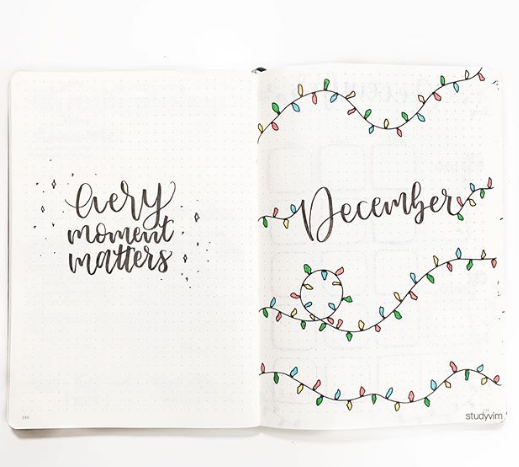 every
moment
matters
December
studyvim